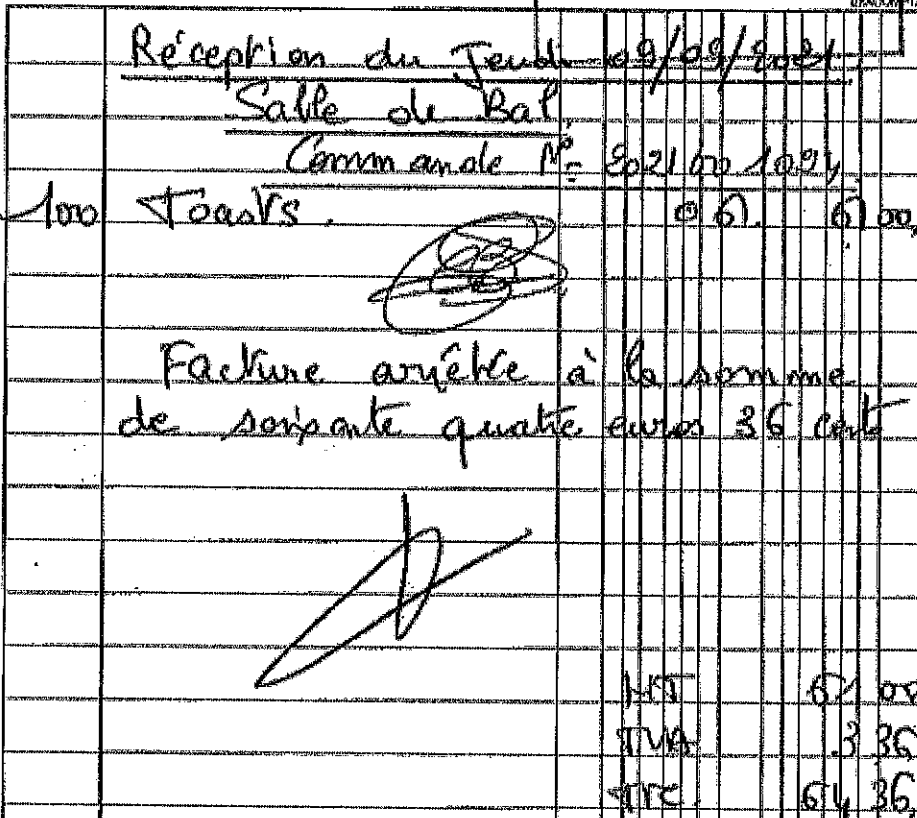 Réception du Jeudi 09/09/2021
Salle de Bal
Commande N° 2021001094
100 Toasts. 0 61 61 00
Facture arrêtée à la somme
de soixante quatre euros 36 cents
HT 61 00
TVA 3 36
TTC 64 36